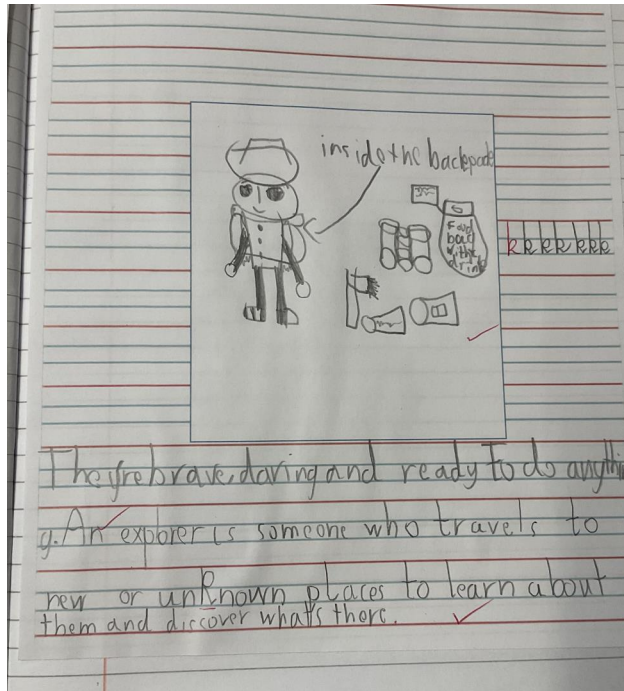 inside the backpack
Food
bad
with
drink
k k k k k k k
They're brave, daring and ready to do anythin
g. An explorer is someone who travels to
new or unknown places to learn about
them and discover what's there.